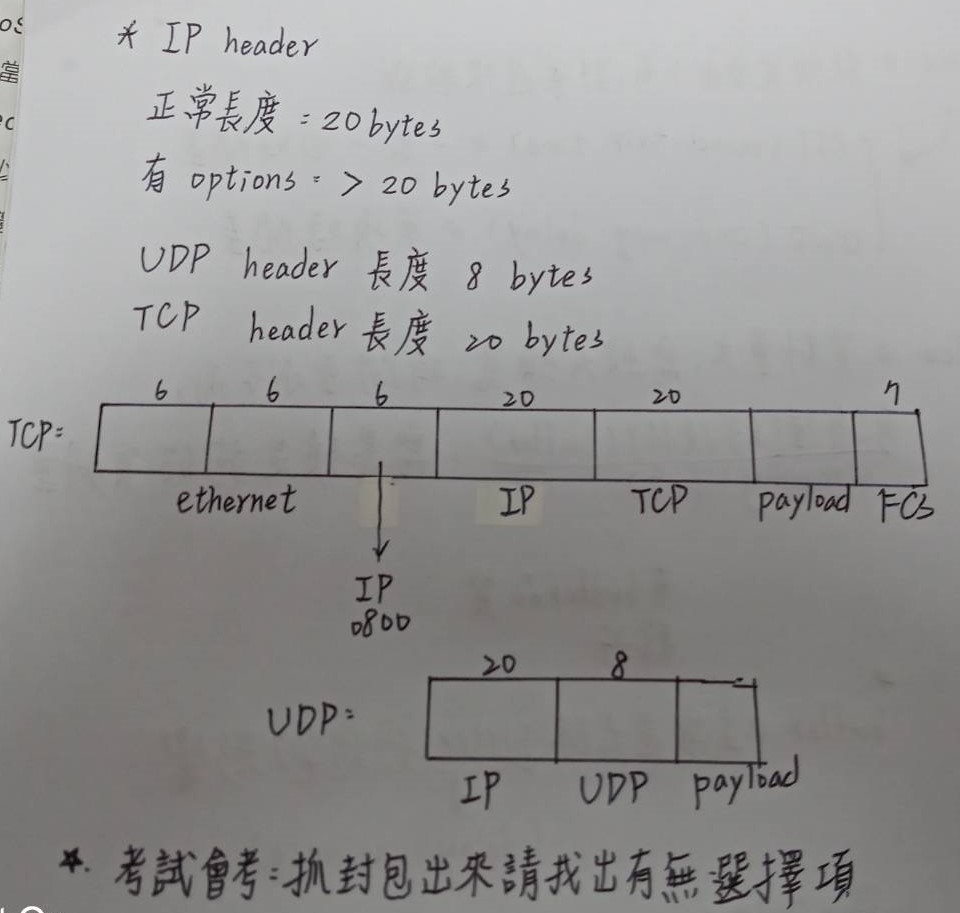 * IP header
正常長度 = 20 bytes
有 options = > 20 bytes
UDP header 長度 8 bytes
TCP header 長度 20 bytes
6 6 6 20 20 7
TCP =
ethernet IP TCP payload FCS
IP
0800
20 8
UDP =
IP UDP payload
*. 考試會考 = 抓封包出來請找出有無選擇項